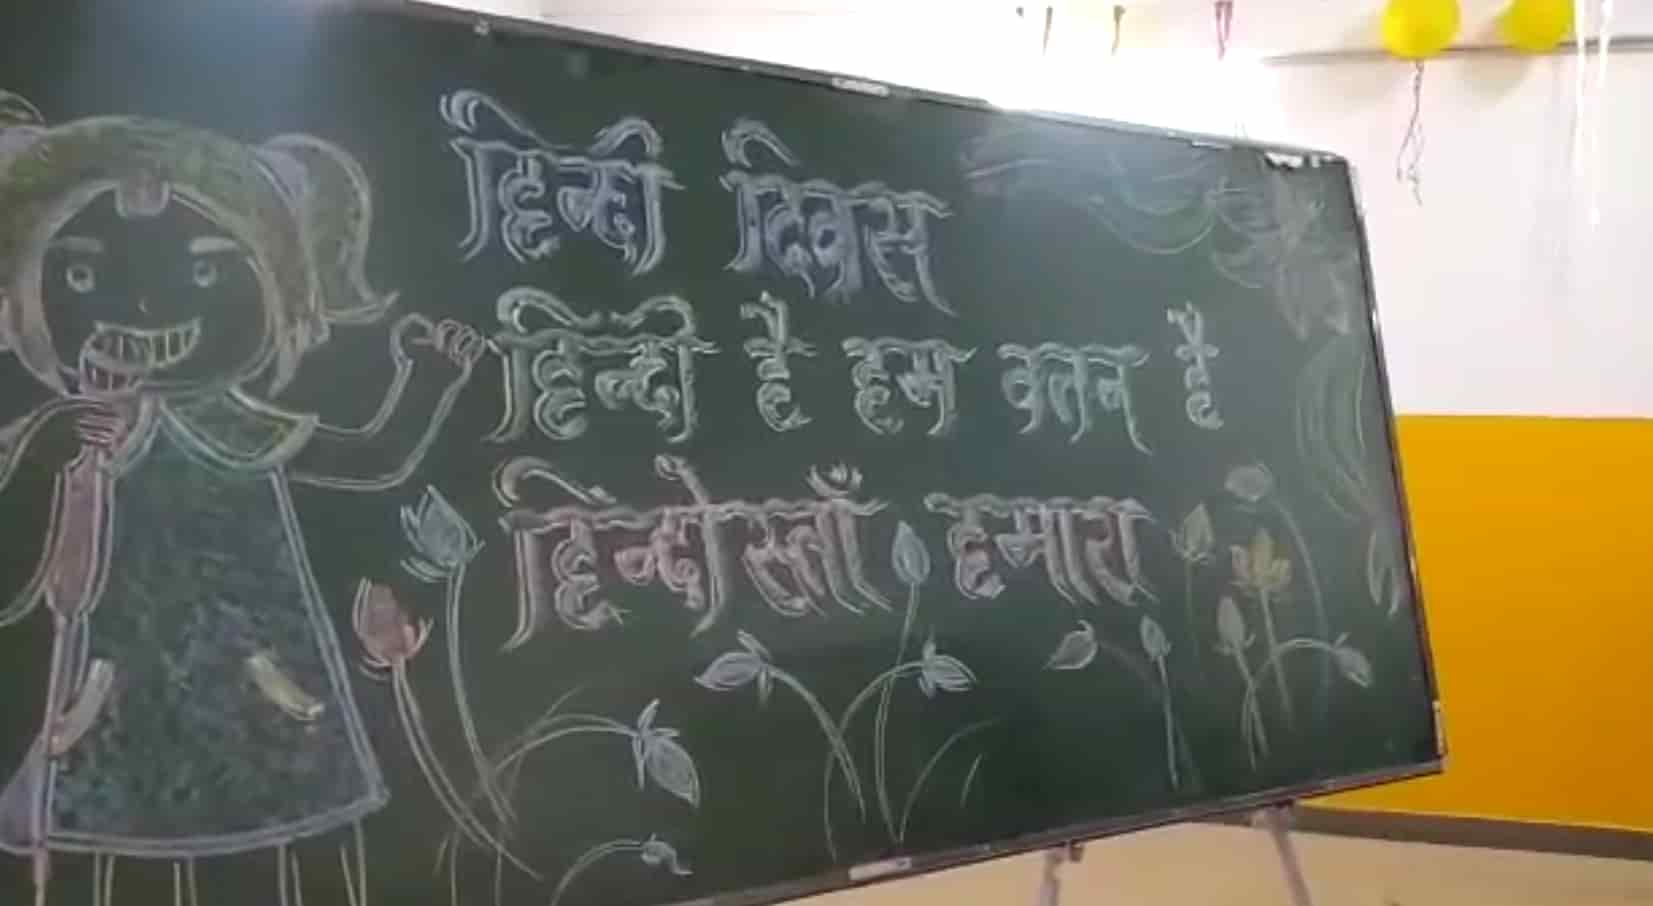 हिन्दी दिवस
हिन्दी है हम वतन है
हिन्दोस्ताँ हमारा